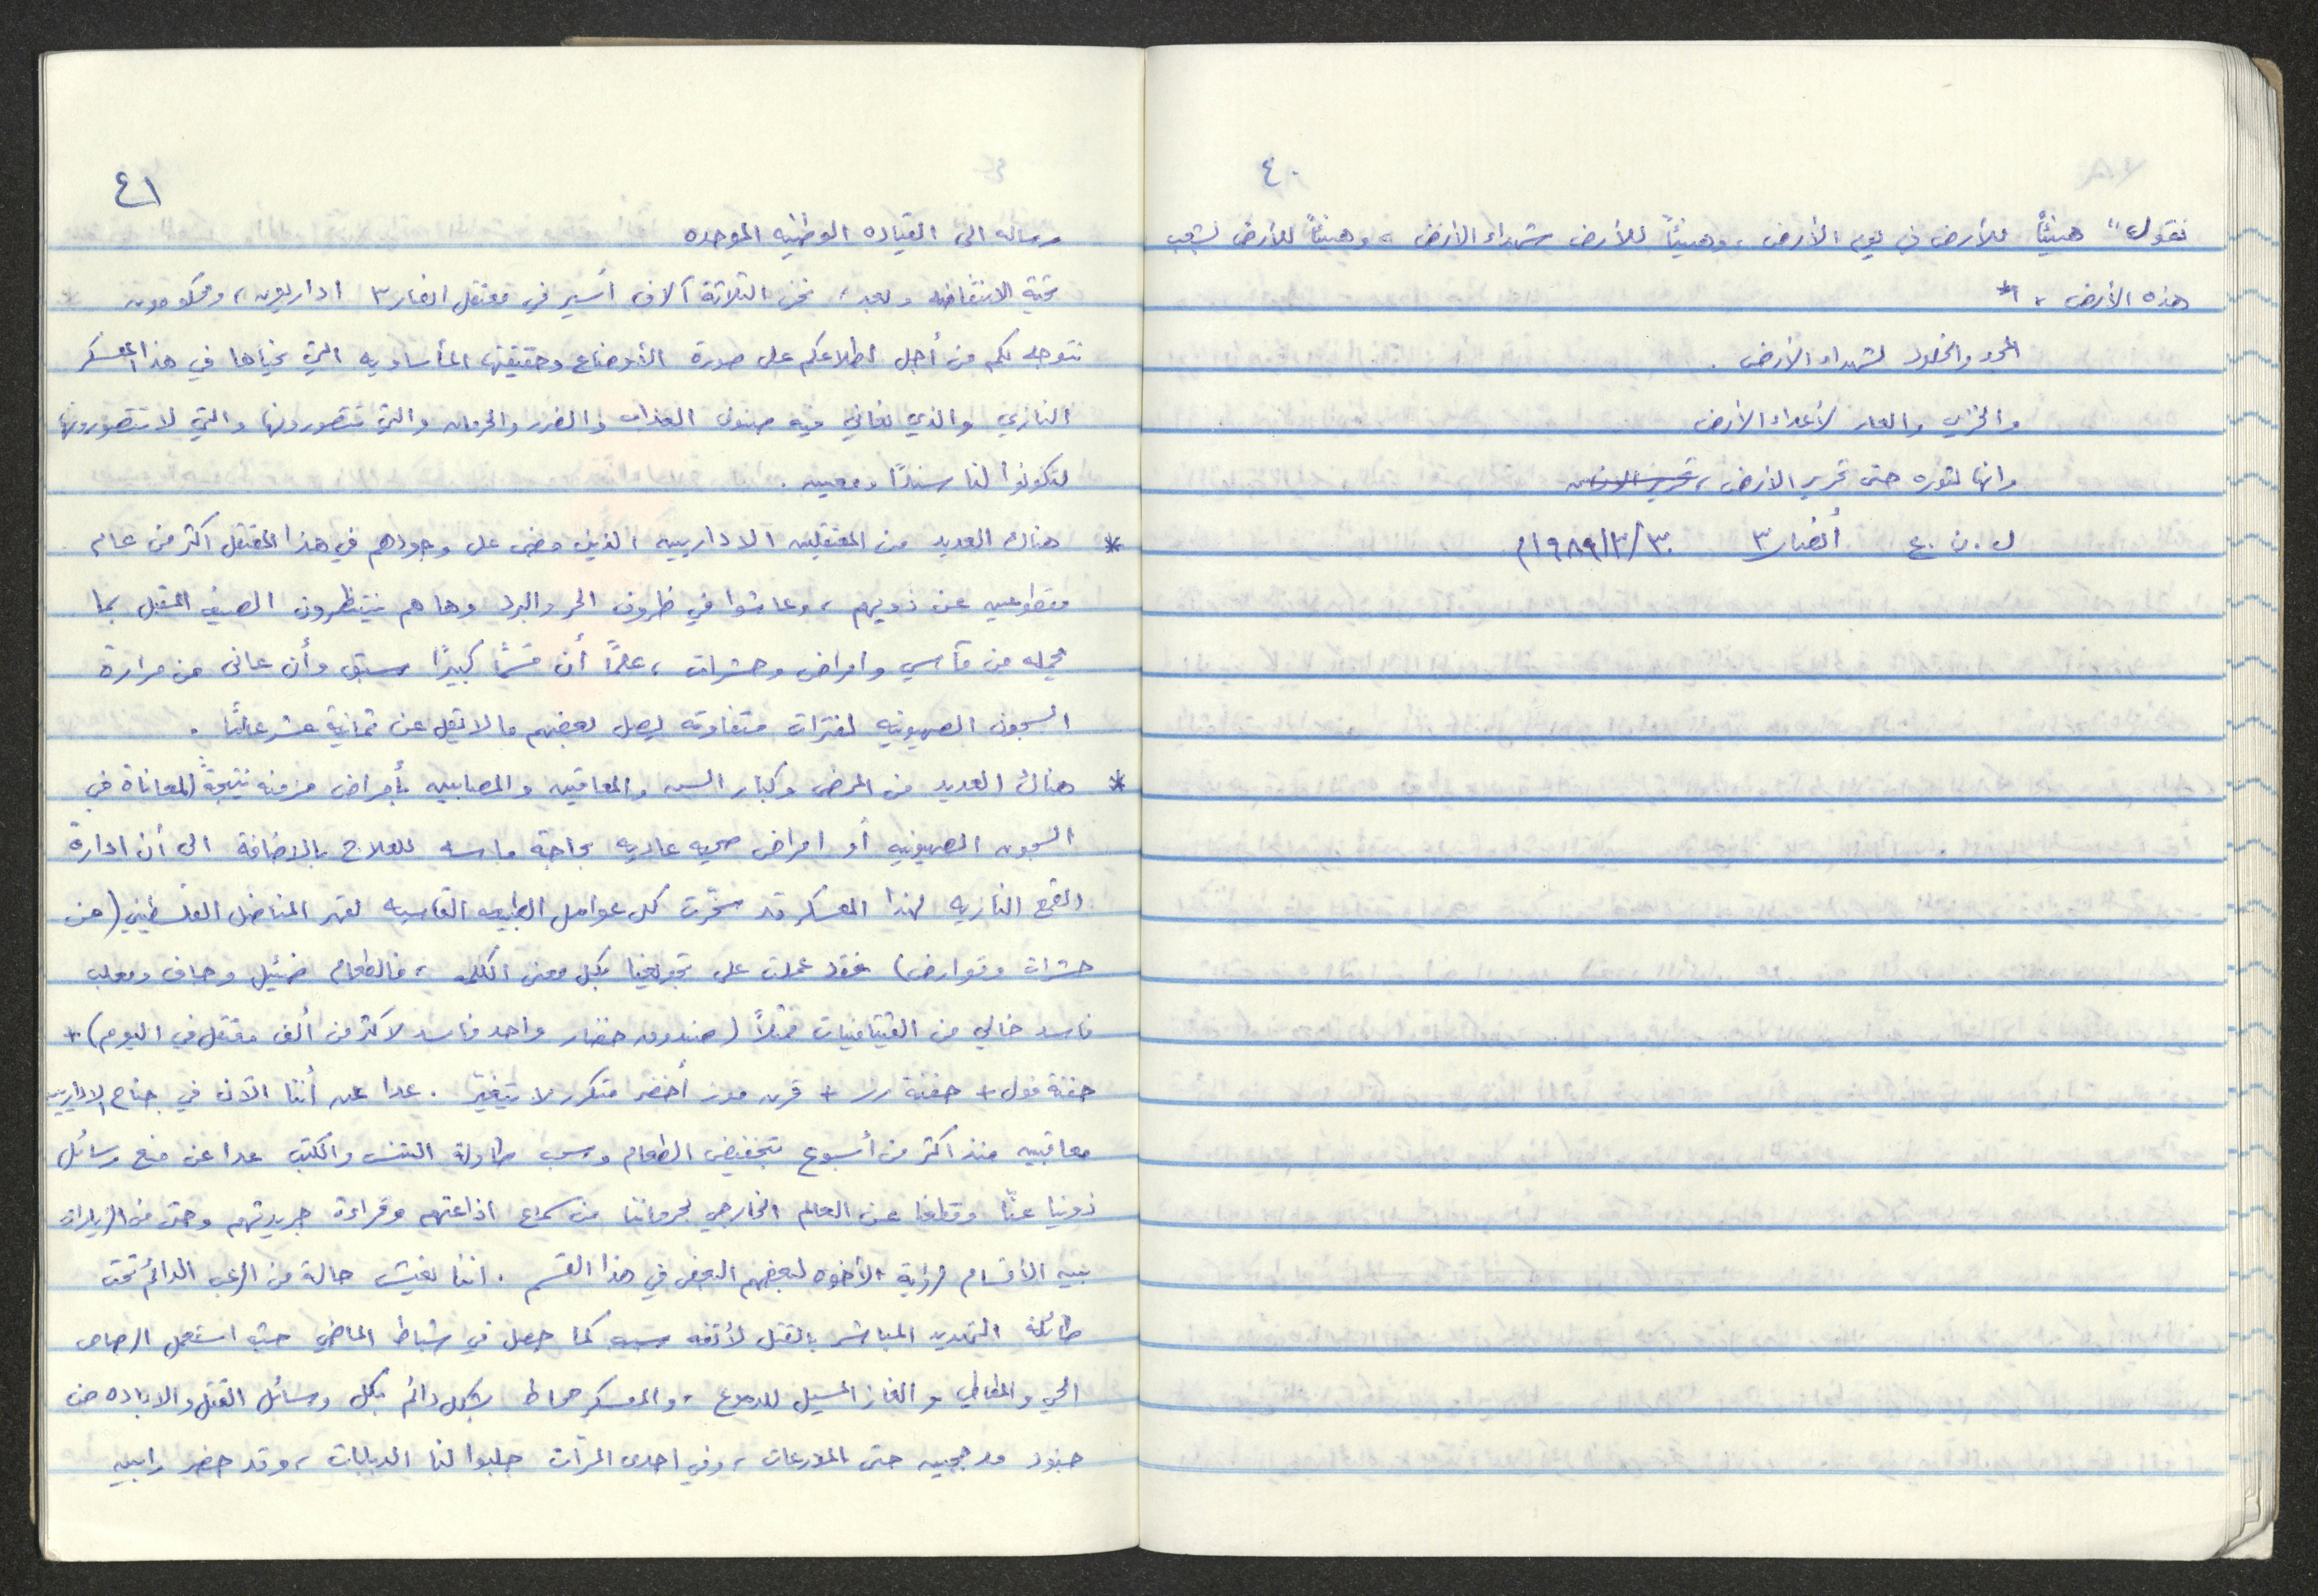 ٤٠
نقول " هنيئاً للأرض في يوم الأرض، وهنيئاً للأرض شهداء الأرض، وهنيئاً للأرض لشعب
هذه الأرض، "*
المجد والخلود لشهداء الأرض.
والخزي والعار لأعداء الأرض
وانها لثوره حتى تحرير الارض،
ل.ن.ع أنصار ٣ ٣٠/٣/١٩٨٩م
٤١
رساله الى القياده الوطنيه الموحده
تحية الانتفاضه وبعد، نحن الثلاثة آلاف أسير في معتقل انصار ٣ اداريون، ومحكومون
نتوجه لكم من أجل اطلاعكم على صورة الأوضاع وحقيقتها المأساويه التي نحياها في هذا المعسكر
النازي والذي نعاني فيه صنوف العذاب والضرر والحرمان والتي تتصورونها والتي لا تتصورونها
لتكونوا لنا سنداً ومعين.
* هناك العديد من المعتقلين الاداريين الذين مضى على وجودهم في هذا المعتقل اكثر من عام
مقطوعين عن ذويهم، وعاشوا في ظروف الحر والبرد وها هم ينتظرون الصيف المقبل بما
يحمله من مآسي وامراض وحشرات، علماً أن قسماً كبيراً سبق وأن عانى من مرارة
السجون الصهيونيه لفترات متفاوته ليصل بعضهم ما لا يقل عن ثمانية عشر عاماً.
* هناك العديد من المرضى وكبار السن والمعاقين والمصابين بأمراض مزمنه نتيجةً للمعاناة في
السجون الصهيونيه أو امراض صحيه عاديه بحاجة ماسه للعلاج بالاضافة الى أن ادارة
القمع النازيه لهذا المعسكر قد سخرت كل عوامل الطبيعه القاسيه لقهر المناضل الفلسطيني (من
حشرات وقوارض) فقد عملت على تجويعنا بكل معنى الكلمه، فالطعام ضئيل وجاف ومعلب
فاسد خالي من الفيتامينات فمثلاً (صندوق خضار واحد فاسد لاكثر من ألف معتقل في اليوم) +
حفنة فول + حفنة رز + قرن موز أخضر متكرر لا يتغير. عدا عن أننا الآن في جناح الاداريين
معاقبين منذ اكثر من أسبوع بتخفيض الطعام وسحب طاولة التنس والكتب عدا عن منع رسائل
ذوينا عنّا وقطعنا عن العالم الخارجي لحرماننا من سماع اذاعتهم وقراءة جريدتهم وحتى من الزيارات
بين الأقسام لرؤية الأخوه لبعضهم البعض في هذا القسم. اننا نعيش حالة من الرعب الدائم تحت
طائلة التهديد المباشر بالقتل لأتفه سبب كما حصل في شباط الماضي حيث استعمل الرصاص
الحي والمطاطي والغاز المسيل للدموع، والمعسكر محاط بشكل دائم بكل وسائل القتل والاباده من
جنود مدججين حتى المدرعات، وفي احدى المرات جلبوا لنا الدبابات، وقد حضر رابين